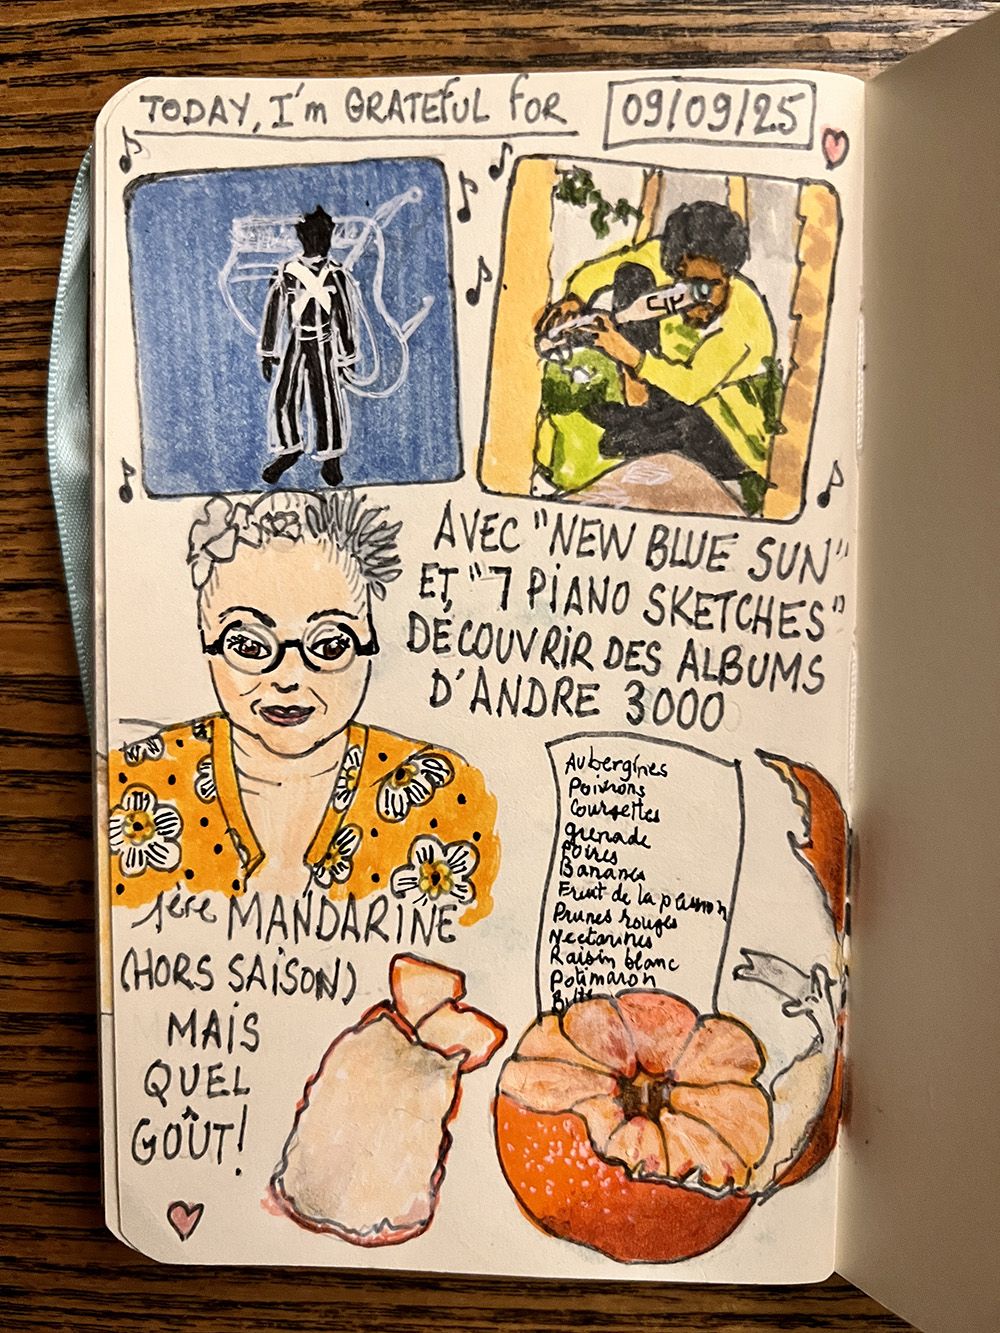 TODAY, I'm GRATEFUL FOR
09/09/25
AVEC "NEW BLUE SUN"
ET "7 PIANO SKETCHES"
DÉCOUVRIR DES ALBUMS
D'ANDRE 3000
Aubergines
Poivrons
Courgettes
grenade
Poires
Bananes
Fruit de la passion
Prunes rouges
Nectarines
Raisin blanc
Potimaron
1ère MANDARINE
(HORS SAISON)
MAIS
QUEL
GOÛT!